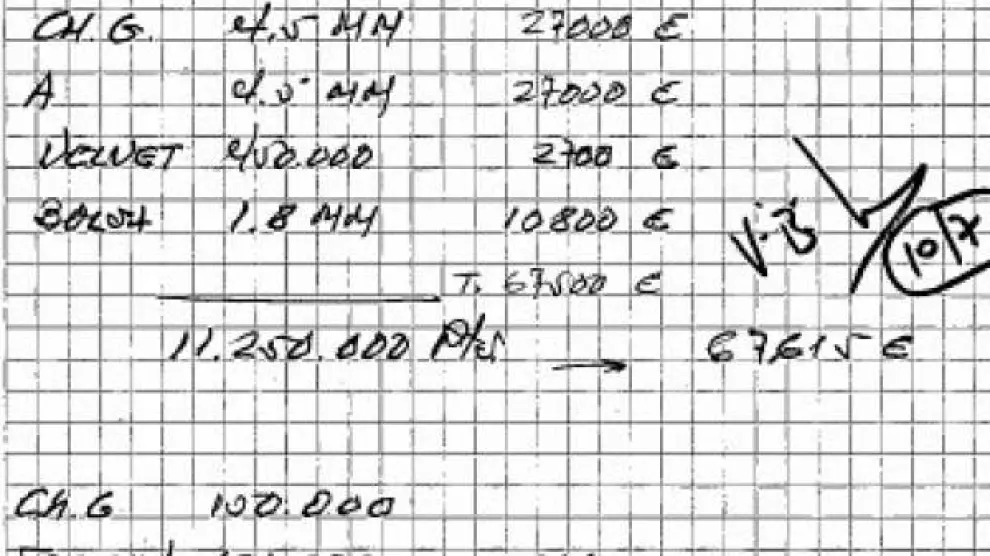 CH. G. 4.5 MM 27000 €
A 4.5 MM 27000 €
VELVET 450.000 2700 €
BOLSA 1.8 MM 10800 €
V.B 10/7
T. 67500 €
11.250.000 Pts → 67.615 €
CH. G 100.000